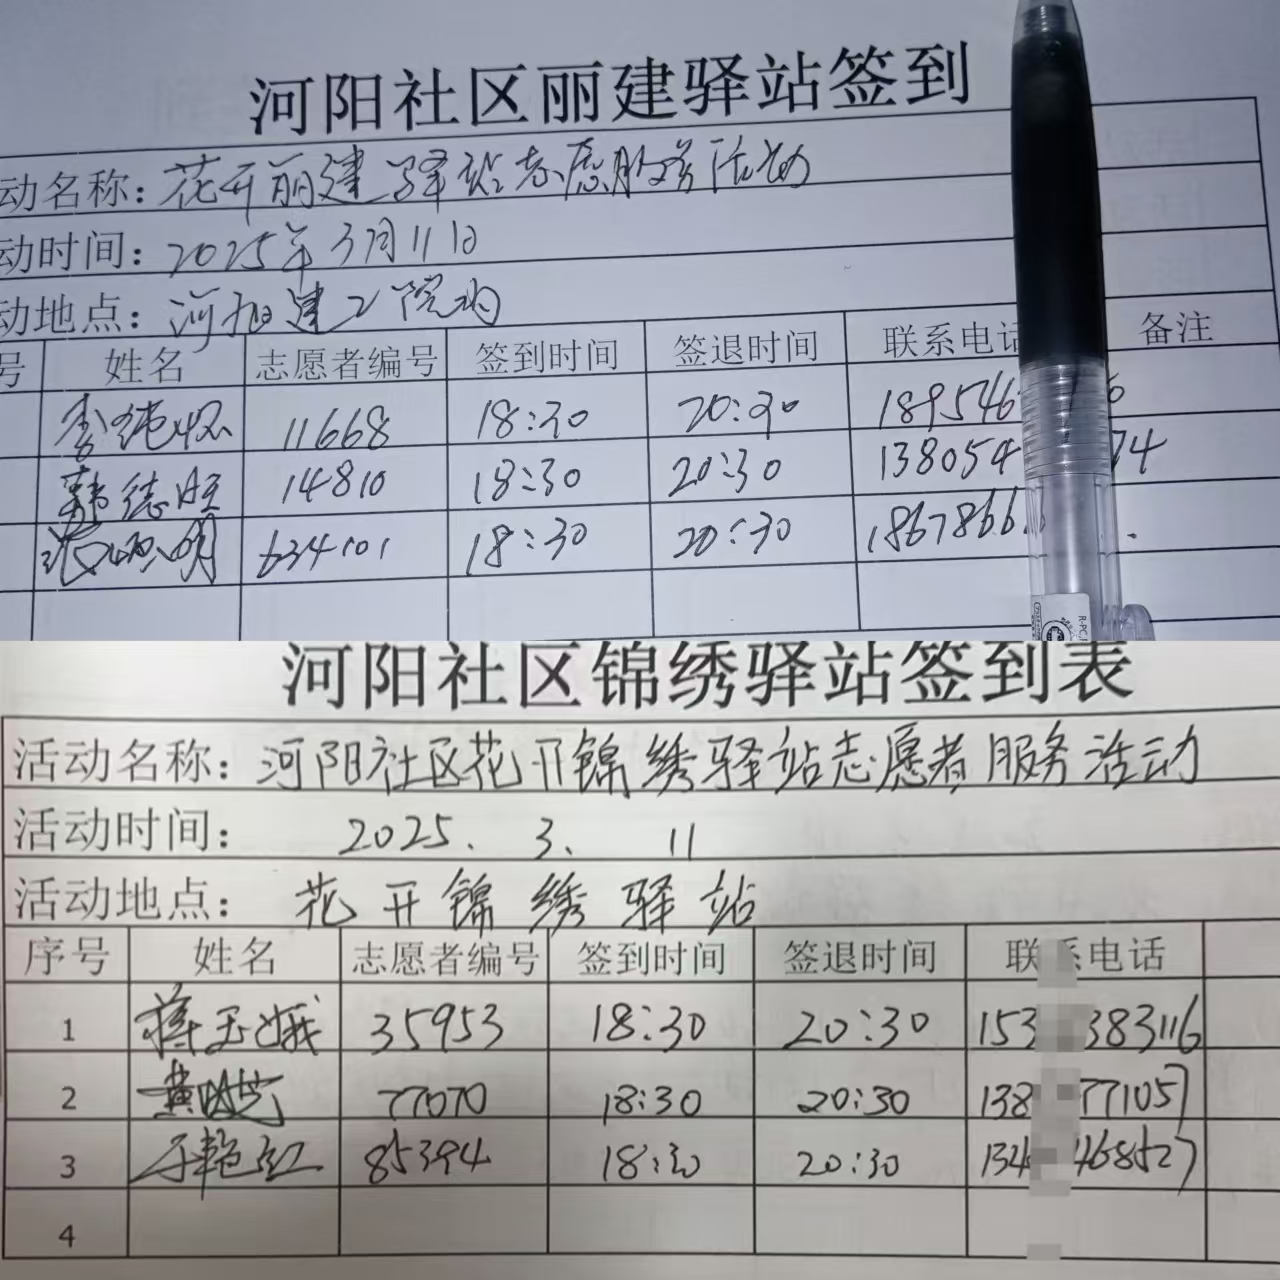 河阳社区丽建驿站签到
动名称：花开丽建驿站志愿服务活动
动时间：2025年3月11日
动地点：河阳建工院内
号 姓名 志愿者编号 签到时间 签退时间 联系电话 备注
李纯怀 11668 18:30 20:30 189546 6
韩德胜 14810 18:30 20:30 138054 74
634101 18:30 20:30 1867866
河阳社区锦绣驿站签到表
活动名称：河阳社区花开锦绣驿站志愿者服务活动
活动时间： 2025. 3. 11
活动地点： 花开锦绣驿站
序号 姓名 志愿者编号 签到时间 签退时间 联系电话
1 蒋玉娥 35953 18:30 20:30 153 383116
2 黄 77070 18:30 20:30 138 771057
3 于艳红 85394 18:30 20:30 134 468527
4